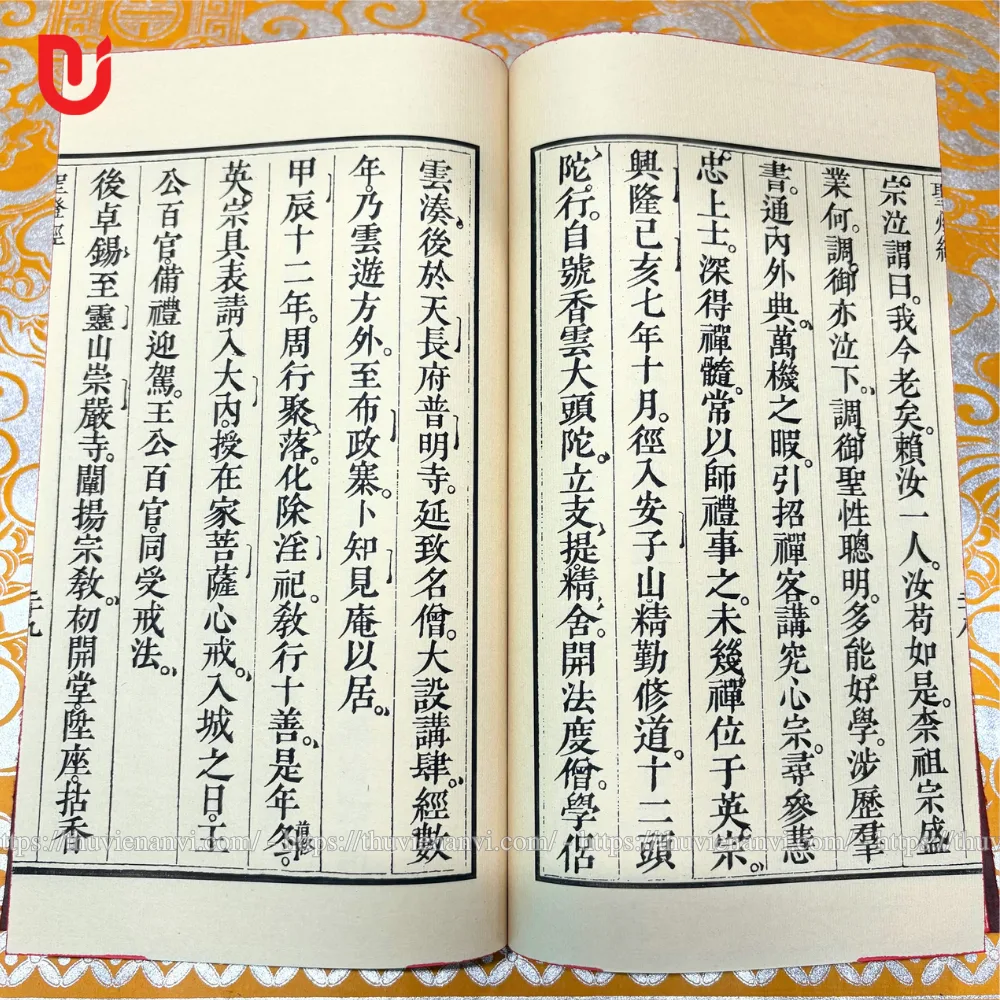 宗泣謂曰。我今老矣。賴汝一人。汝苟如是。柰祖宗盛
業何。調御亦泣下。調御聖性聰明。多能好學。涉歷羣
書。通內外典。萬機之暇。引招禪客。講究心宗。尋參慧
忠上士。深得禪髓。常以師禮事之。未幾禪位于英宗。
興隆己亥七年十月。徑入安子山。精勤修道。十二頭
陀行。自號香雲大頭陀。立支提精舍。開法度僧。學侶
雲湊。後於天長府普明寺。延致名僧。大設講肆。經數
年。乃雲遊方外。至布政寨。卜知見庵以居。
甲辰十二年。周行聚落。化除淫祀。敎行十善。是年冬。
英宗具表請入大內。授在家菩薩心戒。入城之日。王
公百官。備禮迎駕。王公百官。同受戒法。
後卓錫至靈山崇嚴寺。闡揚宗敎。初開堂。陞座。拈香
聖燈經
二十九
https://thuvienanvi.com/ - https://thuvienanvi.com/ - https://thuvienanvi.com/